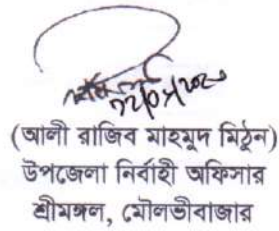 (আলী রাজিব মাহমুদ মিঠুন)
উপজেলা নির্বাহী অফিসার
শ্রীমঙ্গল, মৌলভীবাজার